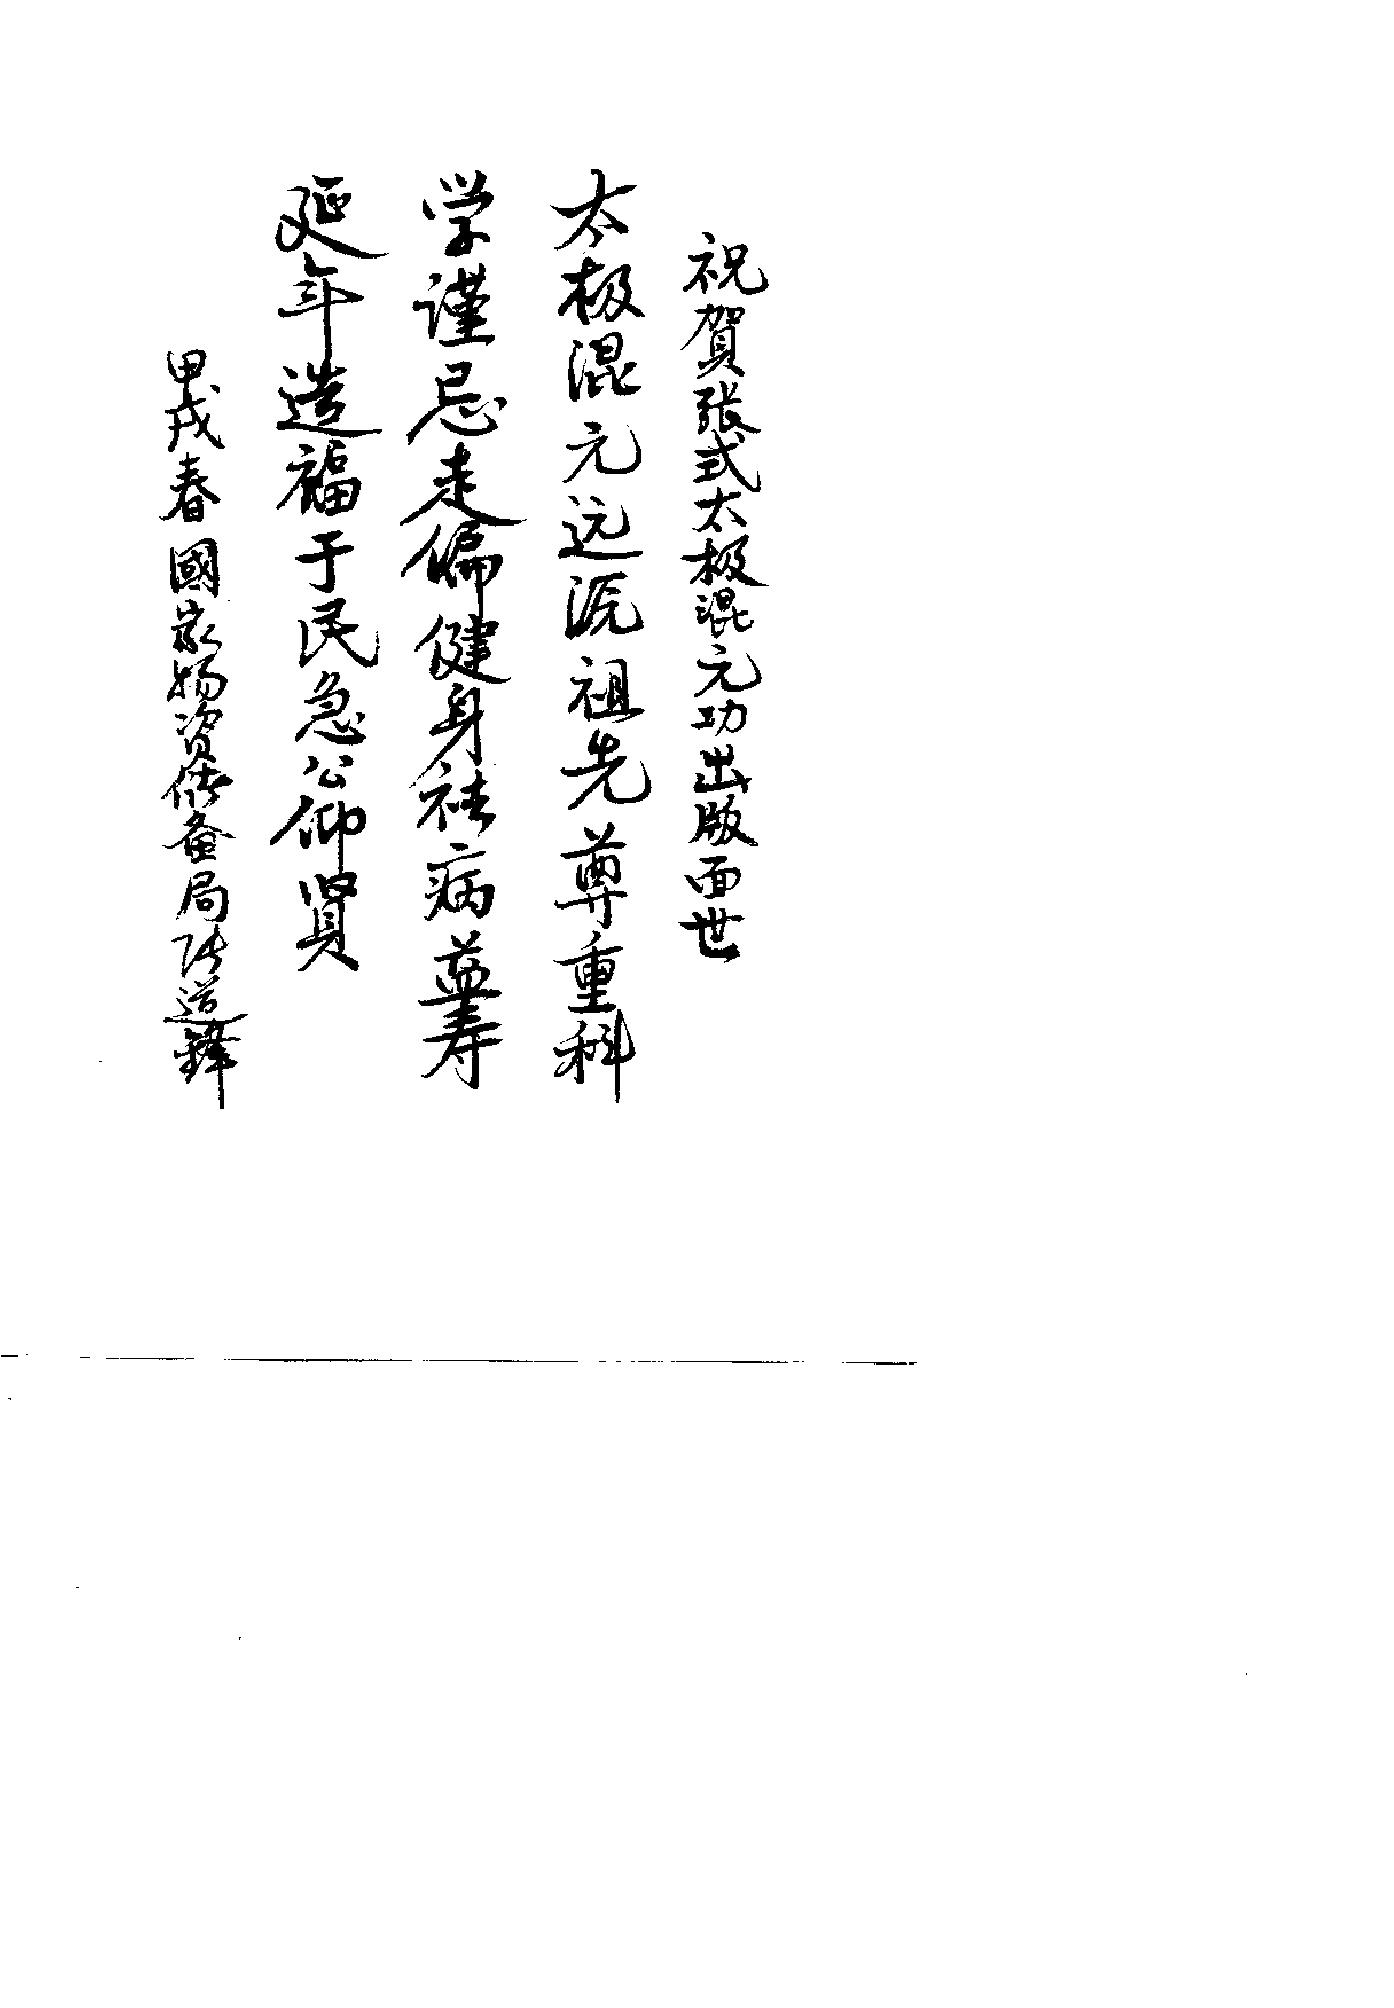 祝賀张式太极混元功出版面世
太极混元远流祖先尊重科
学谨忌走偏健身祛病益寿
延年造福于民急公仰贤
甲戌春國家物资储备局陆道鋒